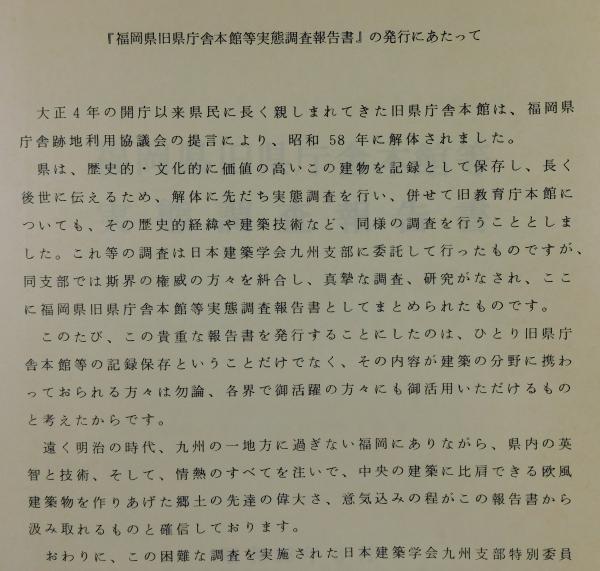 『福岡県旧県庁舎本館等実態調査報告書』の発行にあたって
大正4年の開庁以来県民に長く親しまれてきた旧県庁舎本館は、福岡県
庁舎跡地利用協議会の提言により、昭和 58 年に解体されました。
県は、歴史的・文化的に価値の高いこの建物を記録として保存し、長く
後世に伝えるため、解体に先だち実態調査を行い、併せて旧教育庁本館に
ついても、その歴史的経緯や建築技術など、同様の調査を行うこととしま
した。これ等の調査は日本建築学会九州支部に委託して行ったものですが、
同支部では斯界の権威の方々を糾合し、真摯な調査、研究がなされ、ここ
に福岡県旧県庁舎本館等実態調査報告書としてまとめられたものです。
このたび、この貴重な報告書を発行することにしたのは、ひとり旧県庁
舎本館等の記録保存ということだけでなく、その内容が建築の分野に携わ
っておられる方々は勿論、各界で御活躍の方々にも御活用いただけるもの
と考えたからです。
遠く明治の時代、九州の一地方に過ぎない福岡にありながら、県内の英
智と技術、そして、情熱のすべてを注いで、中央の建築に比肩できる欧風
建築物を作りあげた郷土の先達の偉大さ、意気込みの程がこの報告書から
汲み取れるものと確信しております。
おわりに、この困難な調査を実施された日本建築学会九州支部特別委員